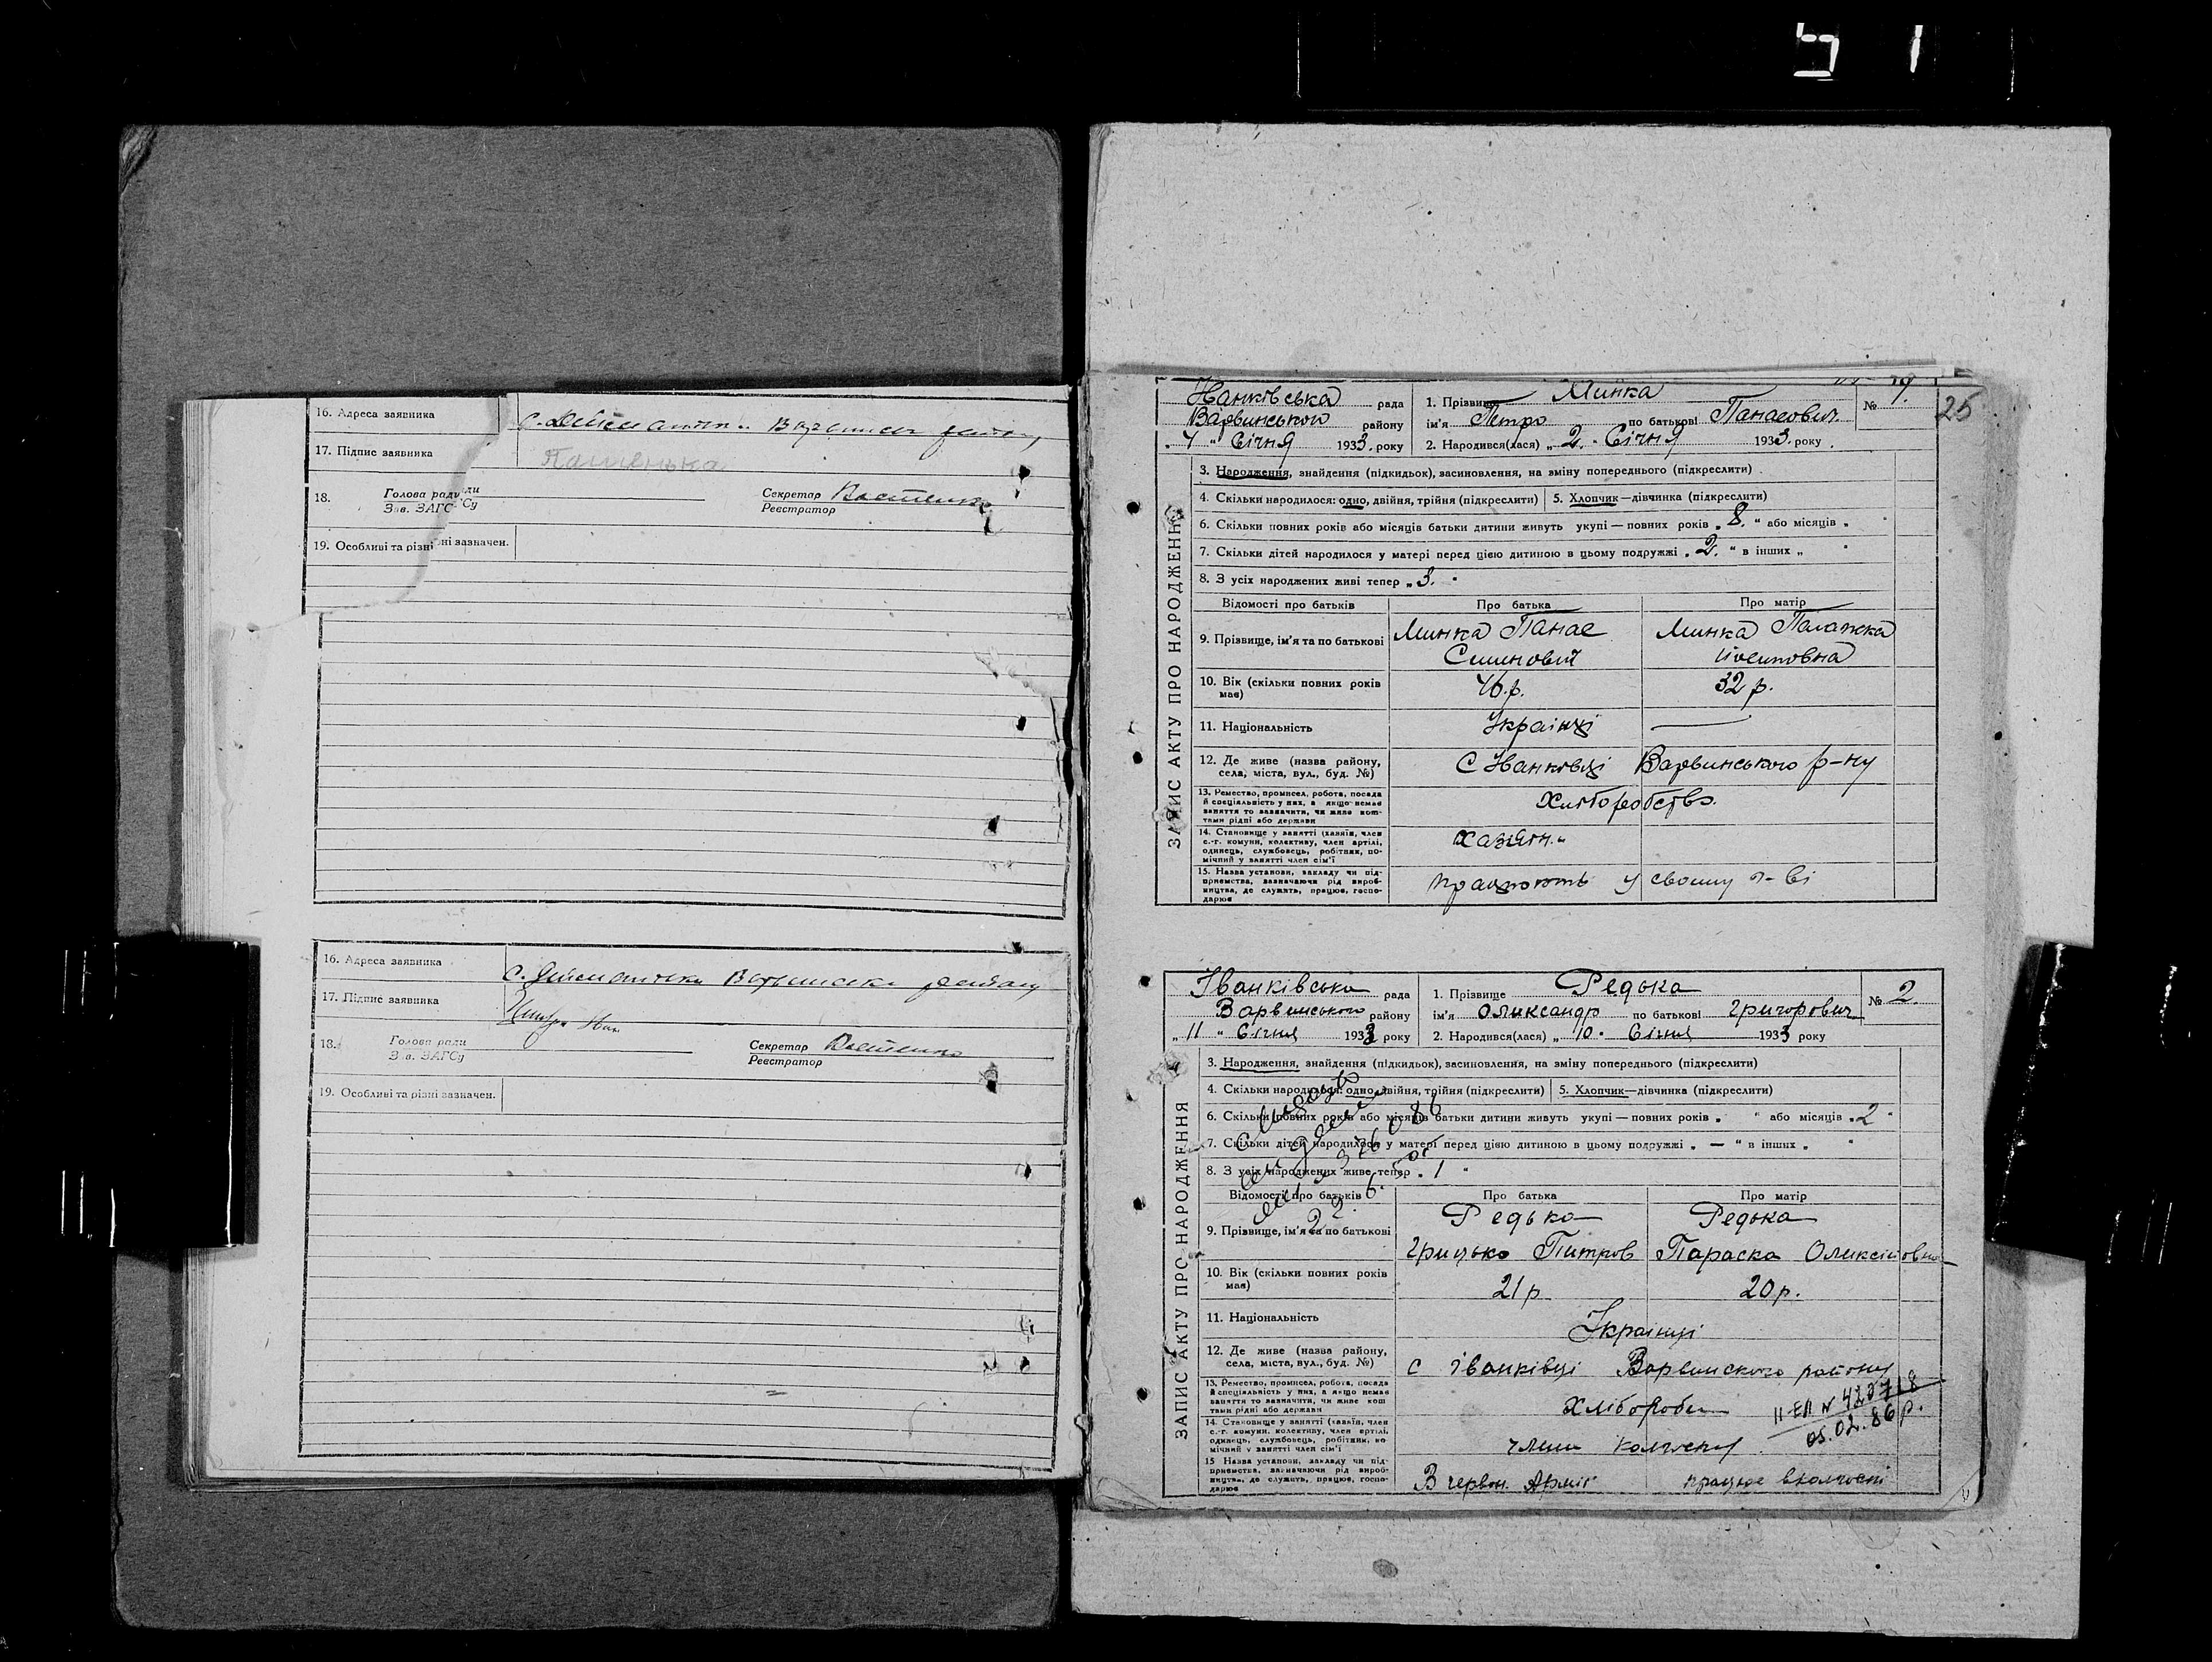 16. Адреса заявника
17. Підпис заявника
Пашенька
18. Голова ради
Зав. ЗАГСу
Секретар
Реєстратор
19. Особливі та різні зазначен.
16. Адреса заявника
17. Підпис заявника
18. Голова ради
Зав. ЗАГСу
Секретар
Реєстратор
19. Особливі та різні зазначен.
25
ЗАПИС АКТУ ПРО НАРОДЖЕННЯ
Іванківська рада
Варвинського району
"7" Січня 1933 року
1. Прізвище Минка
ім'я Петро по батькові Панасович
№ 1.
2. Народився(лася) "2" Січня 1933 року
3. Народження, знайдення (підкидьок), засиновлення, на зміну попереднього (підкреслити)
4. Скільки народилося: одно, двійня, трійня (підкреслити) 5. Хлопчик—дівчинка (підкреслити)
6. Скільки повних років або місяців батьки дитини живуть укупі—повних років „8." або місяців „ "
7. Скільки дітей народилося у матері перед цією дитиною в цьому подружжі „2." в інших „ "
8. З усіх народжених живі тепер „3."
Відомості про батьків Про батька Про матір
9. Прізвище, ім'я та по батькові
Минка Панас Минка Палажка
10. Вік (скільки повних років має) 32 р.
11. Національність Українці —
12. Де живе (назва району, села, міста, вул., буд. №) С Іванківці Варвинського р-ну
13. Ремество, промисел, робота, посада й спеціяльність у них, а якщо немає заняття то зазначити, чи живе коштами рідні або держави
Хліборобство.
14. Становище у занятті (хазяїн, член с.-г. комуни, колективу, член артілі, одинець, службовець, робітник, помічний у занятті член сім'ї
15. Назва установи, закладу чи підприємства, зазначаючи рід виробництва, де служить, працює, господарює
працюють у своєму г-ві
ЗАПИС АКТУ ПРО НАРОДЖЕННЯ
Іванківська рада
Варвинського району
„11" Січня 1933 року
1. Прізвище Редька
ім'я Олександр по батькові Григорович
№ 2.
2. Народився(лася) „10" Січня 1933 року
3. Народження, знайдення (підкидьок), засиновлення, на зміну попереднього (підкреслити)
4. Скільки народилося: одно, двійня, трійня (підкреслити) 5. Хлопчик—дівчинка (підкреслити)
6. Скільки повних років або місяців батьки дитини живуть укупі—повних років „ " або місяців „2"
7. Скільки дітей народилося у матері перед цією дитиною в цьому подружжі „—" в інших „ "
8. З усіх народжених живе тепер „1"
Відомості про батьків Про батька Про матір
9. Прізвище, ім'я та по батькові
Редька Редька
Грицько Петров Параска Олексіївна
10. Вік (скільки повних років має) 21 р. 20 р.
11. Національність Українці
12. Де живе (назва району, села, міста, вул., буд. №) с Іванківці Варвинского району
13. Ремество, промисел, робота, посада й спеціяльність у них, а якщо немає заняття то зазначити, чи живе коштами рідні або держави
Хлібороби
II-ЕЛ № 423718
05.02.86 р.
14. Становище у занятті (хазяїн, член с.-г. комуни, колективу, член артілі, одинець, службовець, робітник, помічний у занятті член сім'ї
члени колгоспу
15 Назва установи, закладу чи підприємства, зазначаючи рід виробництва, де служить, працює, господарює
В червон. Армії працює в колгоспі